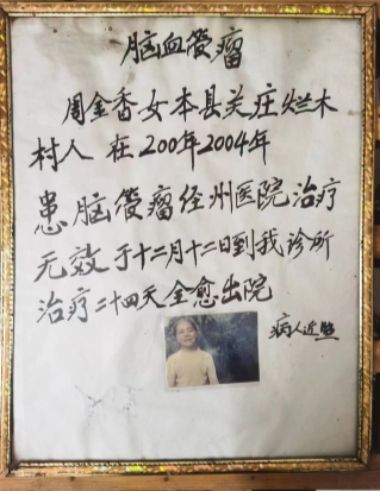 脑血管瘤
周金香女本县关庄烂木
村人 在200年2004年
患脑管瘤经州医院治疗
无效于十二月十二日到我诊所
治疗二十四天全愈出院
病人近照